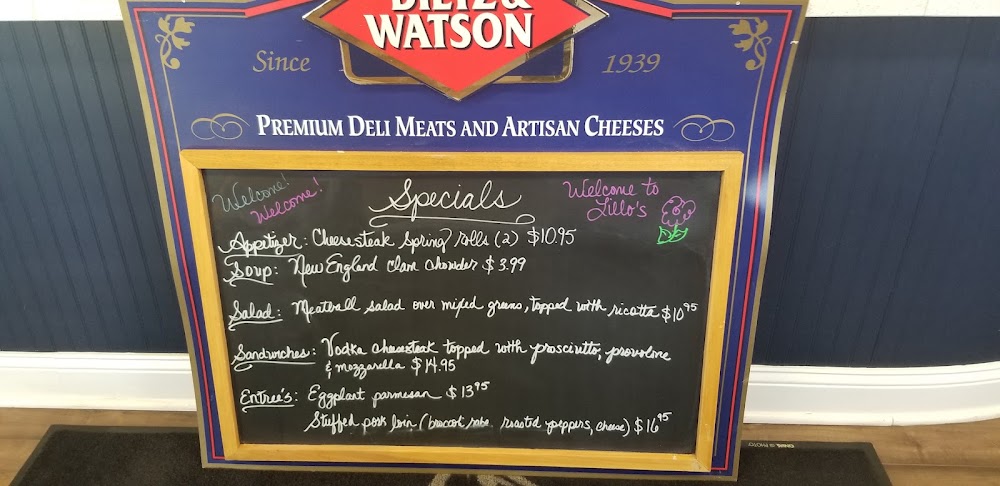 DIETZ &
WATSON
Since 1939
PREMIUM DELI MEATS AND ARTISAN CHEESES
Welcome!
Welcome!
Specials
Welcome to
Lillo's
Appetizer: Cheesesteak Spring rolls (2) $10.95
Soup: New England clam chowder $3.99
Salad: Meatball salad over mixed greens, topped with ricotta $10.95
Sandwiches: Vodka cheesesteak topped with prosciutto, provolone
& mozzarella $14.95
Entreé's: Eggplant parmesan $13.95
Stuffed pork loin (broccoli rabe, roasted peppers, cheese) $16.95